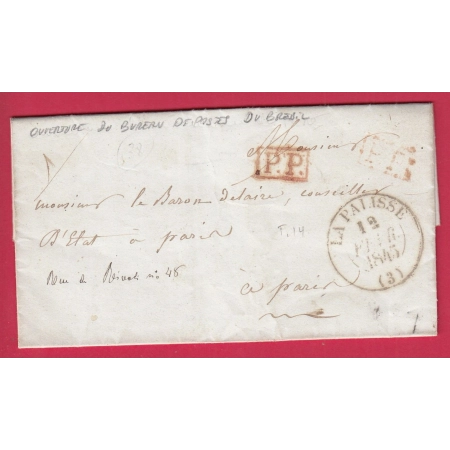 OUVERTURE DU BUREAU DE POSTES DU BREUIL
Monsieur
P.P.
monsieur le Baron delaire, conseiller
D'Etat à paris
F.14
Rue de Rivoli no 48
à paris
LA PALISSE
12
FEVR
1845
(3)